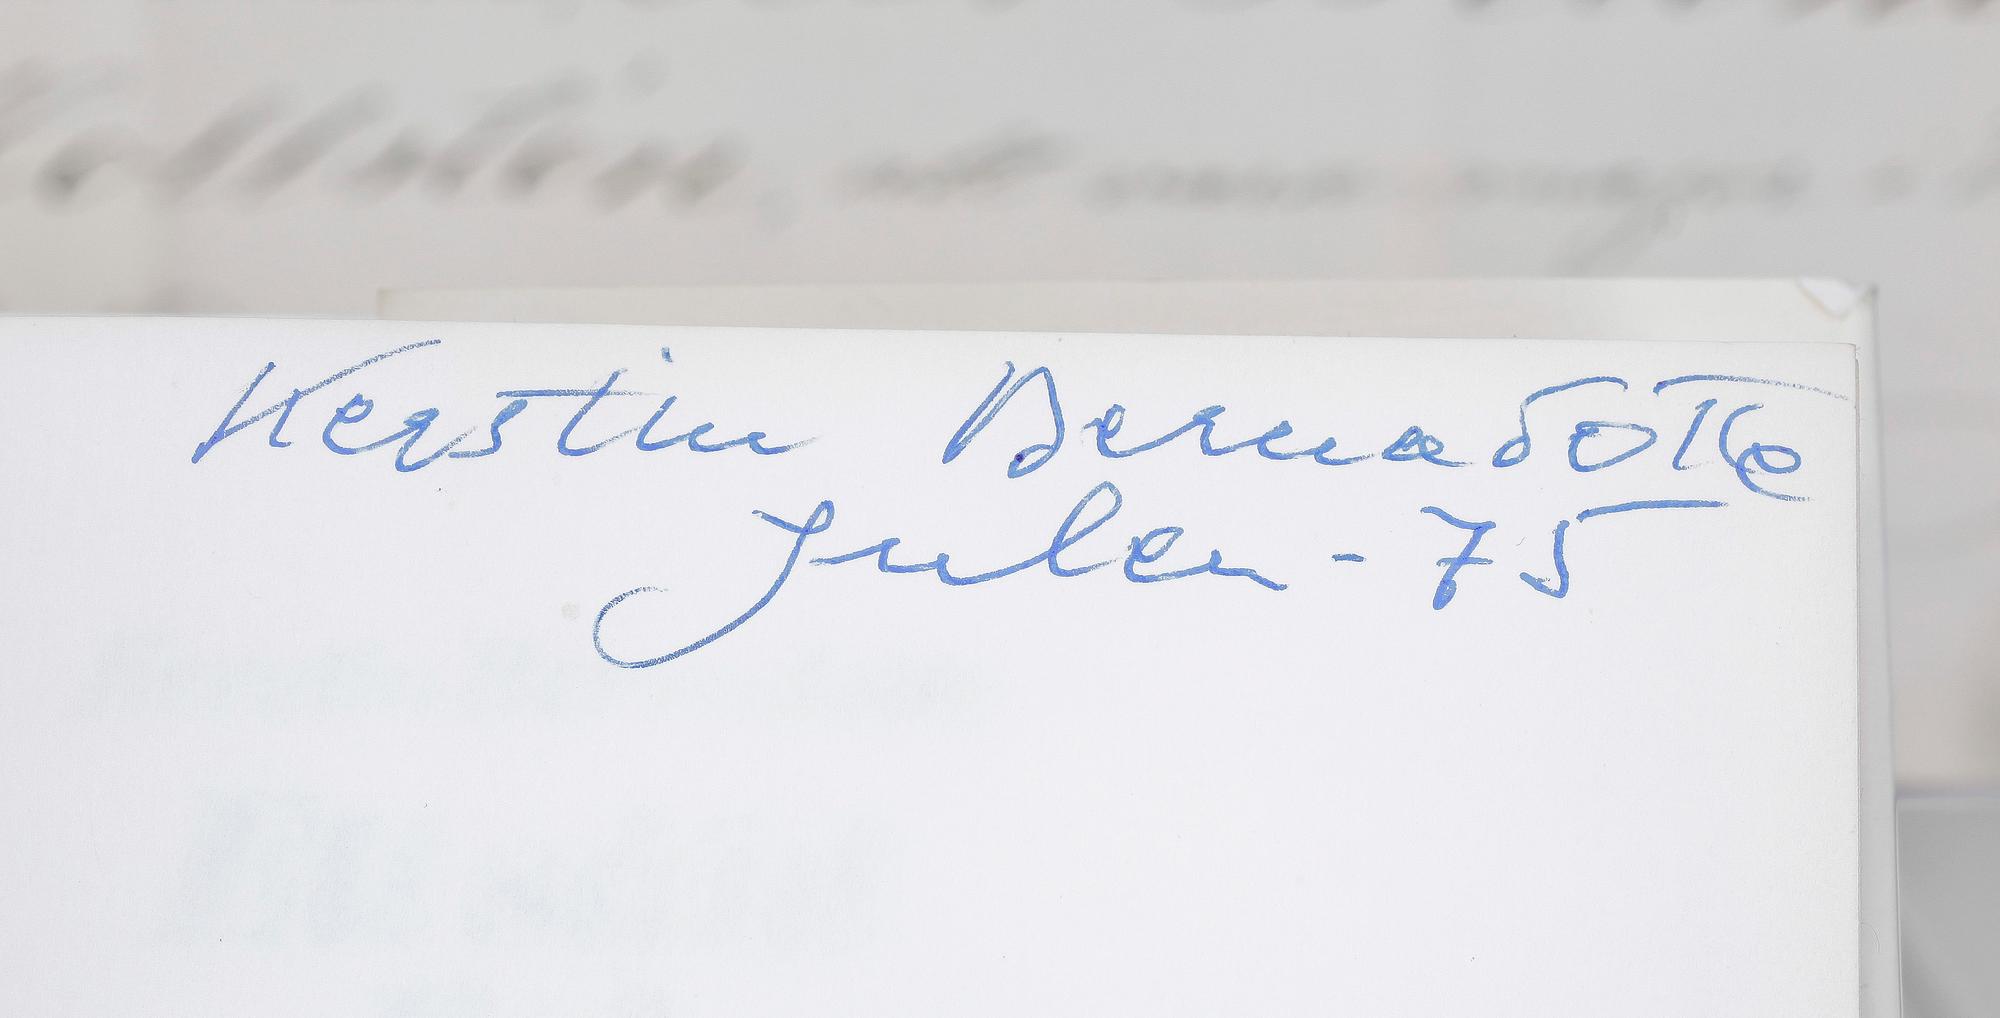 Kerstin Bernadotte
Julen - 75